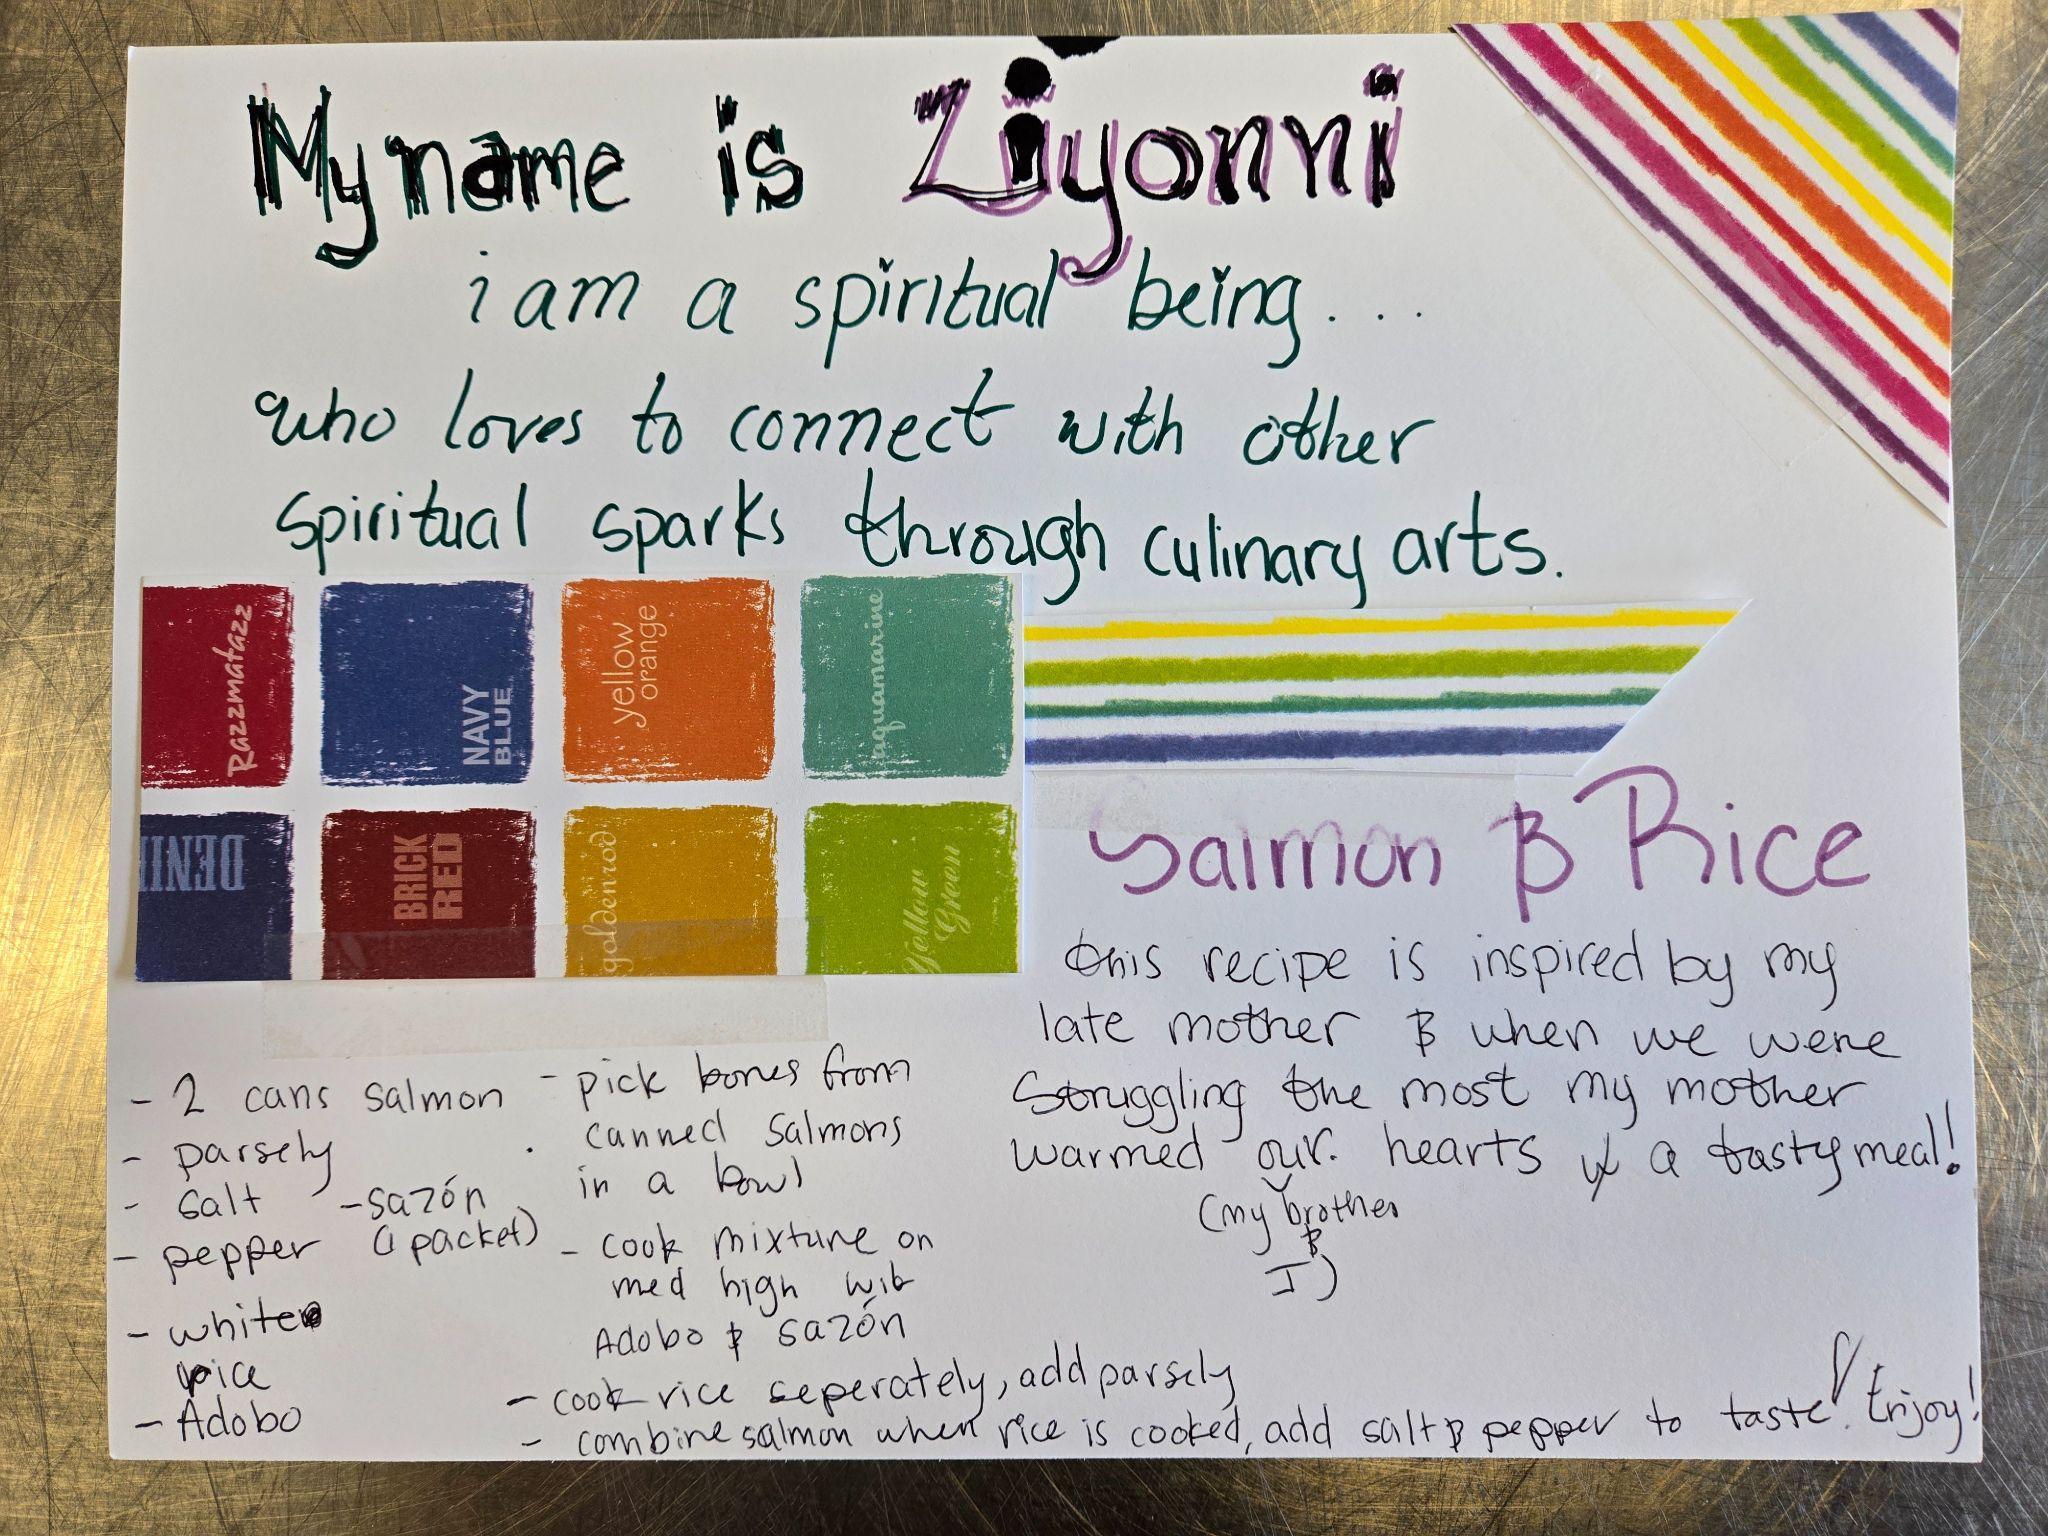 My name is Ziyonni
i am a spiritual being...
who loves to connect with other
spiritual sparks through culinary arts.
Razzmatazz
NAVY
BLUE
yellow
orange
aquamarine
DENI
BRICK
RED
goldenrod
Yellow
Green
Salmon & Rice
this recipe is inspired by my
late mother & when we were
struggling the most my mother
warmed our hearts w/ a tasty meal!
(my brother
&
I)
- 2 cans salmon
- parsely
- salt
- pepper
- sazón
(1 packet)
- white
rice
- Adobo
- pick bones from
canned salmons
in a bowl
- cook mixture on
med high with
Adobo & sazón
- cook rice seperately, add parsely
- combine salmon when rice is cooked, add salt & pepper to taste! Enjoy!